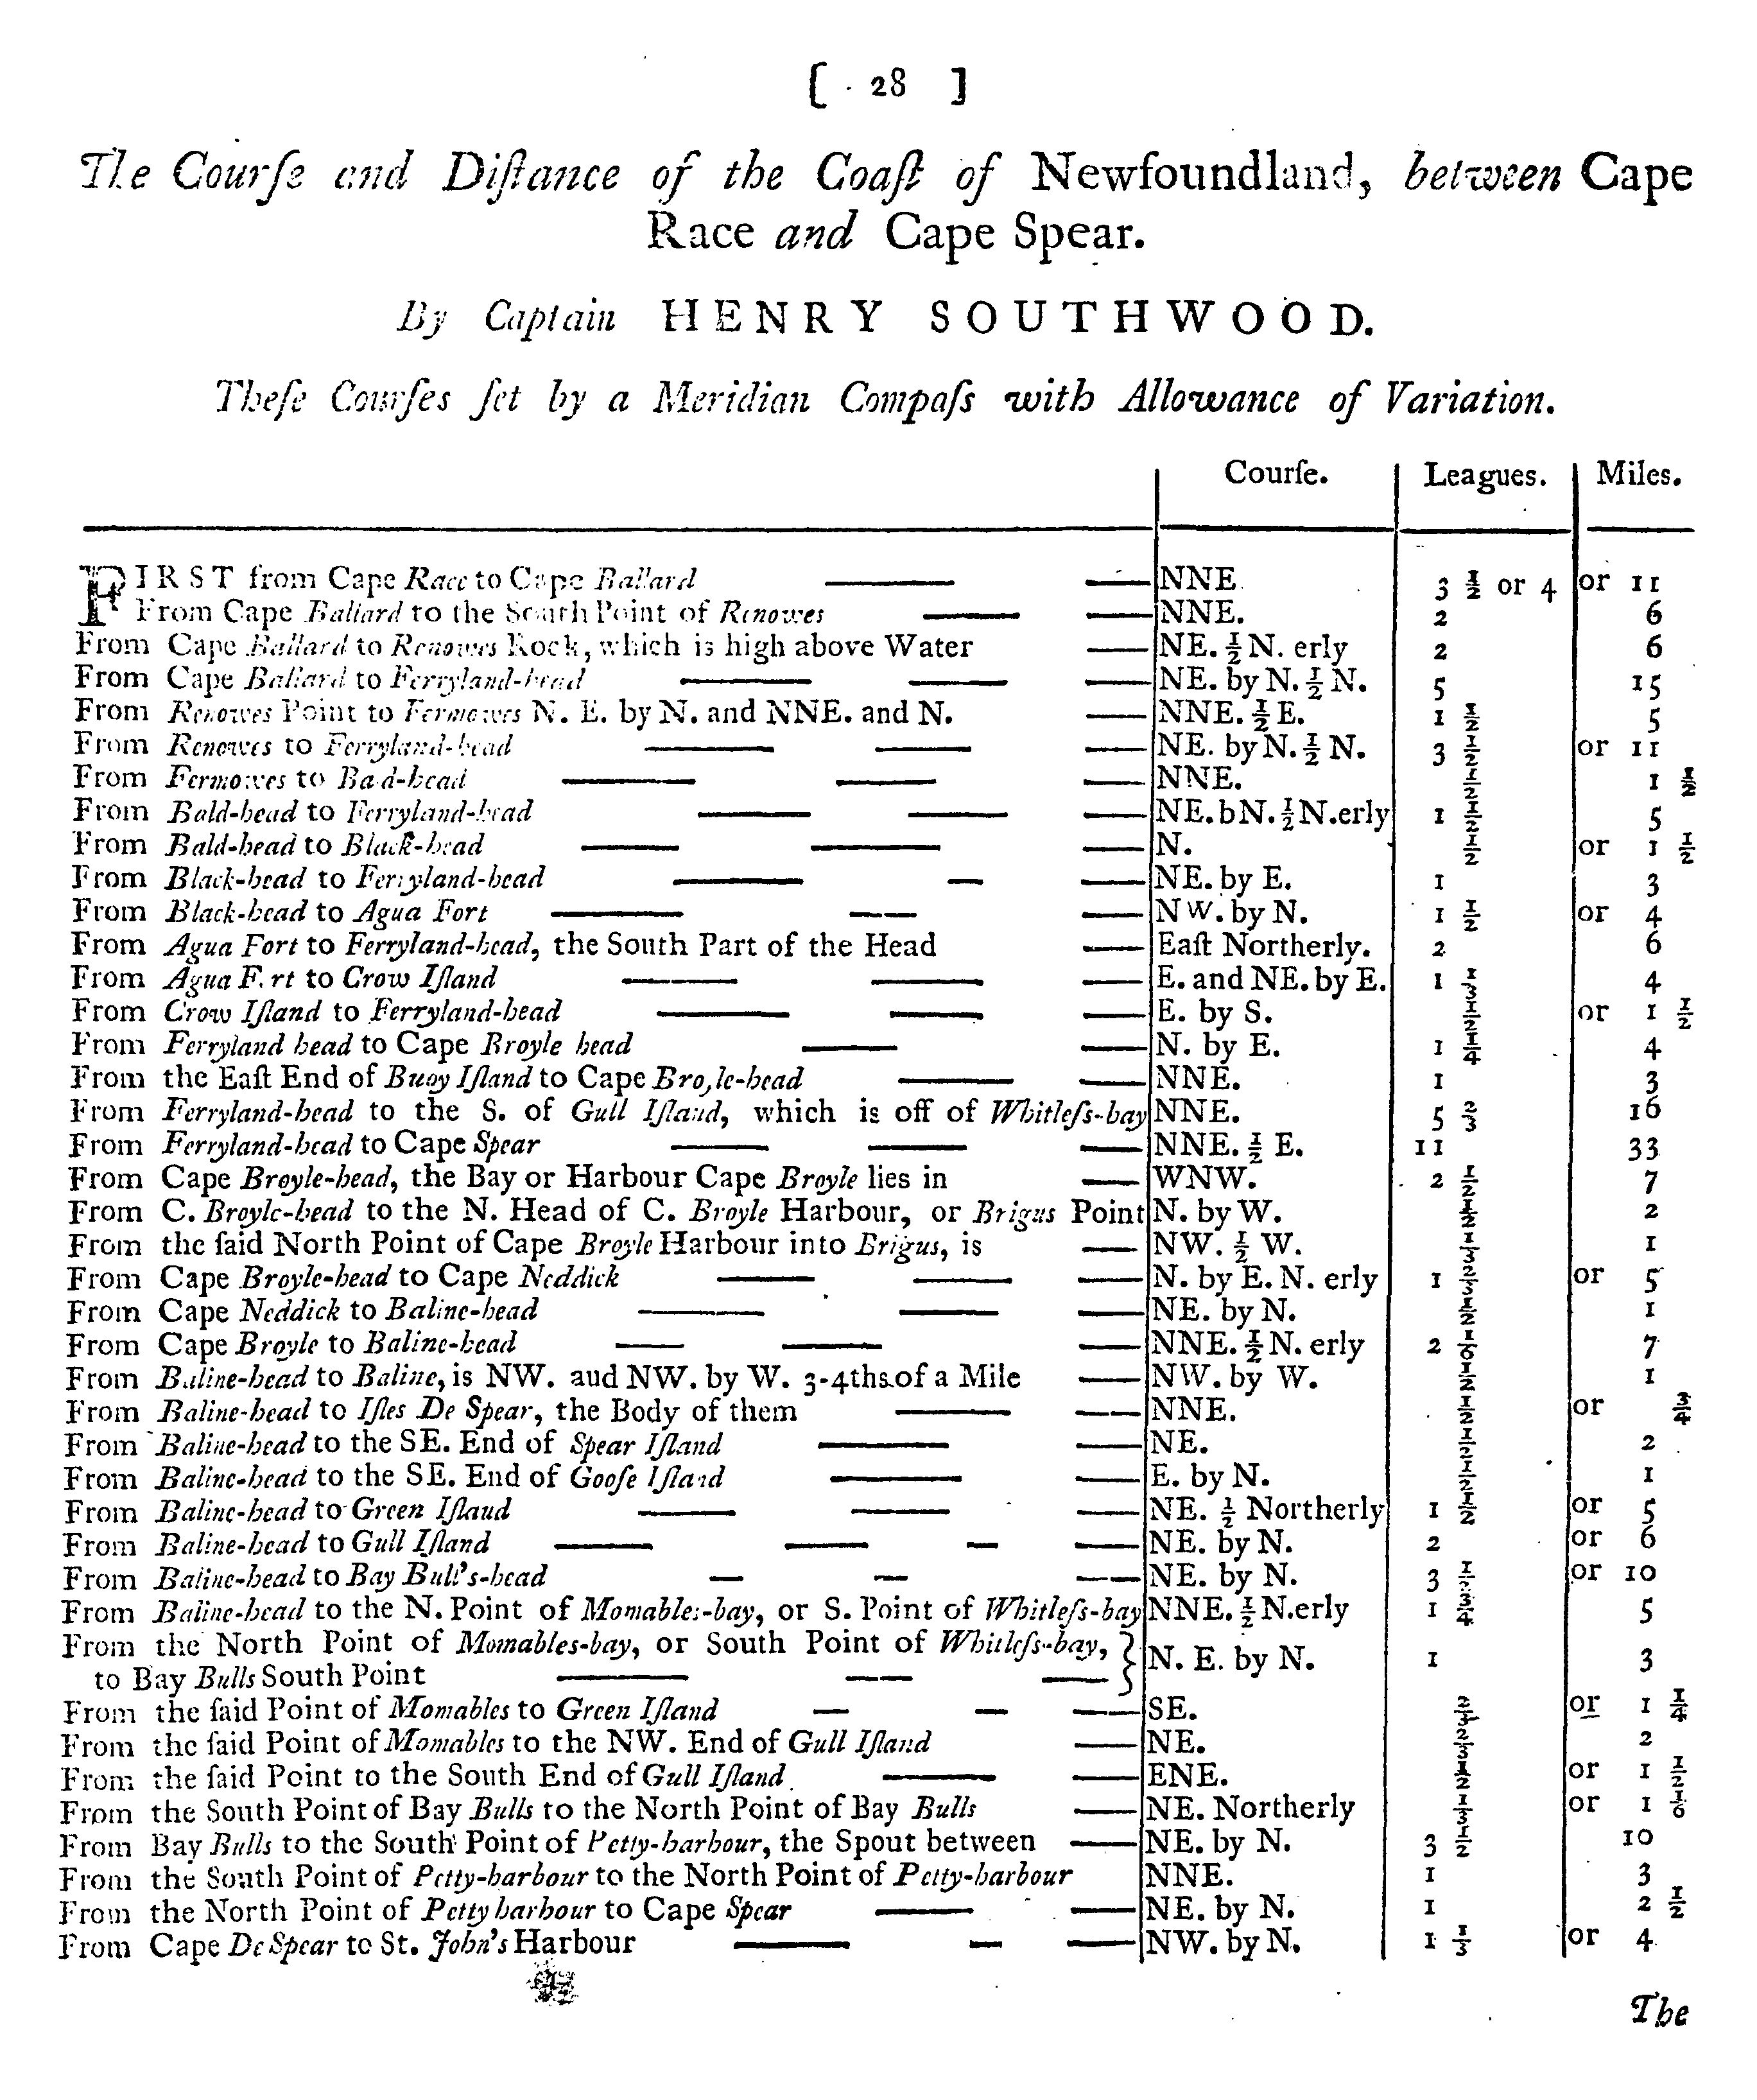 [ 28 ]
The Courſe and Diſtance of the Coaſt of Newfoundland, between Cape
Race and Cape Spear.
By Captain HENRY SOUTHWOOD.
Theſe Courſes ſet by a Meridian Compaſs with Allowance of Variation.
Courſe. Leagues. Miles.
FIRST from Cape Race to Cape Ballard — — NNE 3 ½ or 4 or 11
From Cape Ballard to the South Point of Renowes — — NNE. 2 6
From Cape Ballard to Renowes Rock, which is high above Water — NE. ½ N. erly 2 6
From Cape Ballard to Ferryland-head — — — NE. by N. ½ N. 5 15
From Renowes Point to Fermowes N. E. by N. and NNE. and N. — NNE. ½ E. 1 ½ 5
From Renowes to Ferryland-head — — — NE. by N. ½ N. 3 ½ or 11
From Fermowes to Bald-head — — — NNE. ½ 1 ½
From Bald-head to Ferryland-head — — — NE. bN. ½ N.erly 1 ½ 5
From Bald-head to Black-head — — — N. ½ or 1 ½
From Black-head to Ferryland-head — — — NE. by E. 1 3
From Black-head to Agua Fort — — — NW. by N. 1 ½ or 4
From Agua Fort to Ferryland-head, the South Part of the Head — Eaſt Northerly. 2 6
From Agua F.rt to Crow Iſland — — — E. and NE. by E. 1 ⅓ 4
From Crow Iſland to Ferryland-head — — — E. by S. ½ or 1 ½
From Ferryland head to Cape Broyle head — — N. by E. 1 ¼ 4
From the Eaſt End of Buoy Iſland to Cape Broyle-head — — NNE. 1 3
From Ferryland-head to the S. of Gull Iſland, which is off of Whitleſs-bay NNE. 5 ⅔ 16
From Ferryland-head to Cape Spear — — — NNE. ½ E. 11 33
From Cape Broyle-head, the Bay or Harbour Cape Broyle lies in — WNW. 2 ½ 7
From C. Broyle-head to the N. Head of C. Broyle Harbour, or Brigus Point N. by W. ½ 2
From the ſaid North Point of Cape Broyle Harbour into Brigus, is — NW. ½ W. ⅓ 1
From Cape Broyle-head to Cape Neddick — — — N. by E. N. erly 1 ⅔ or 5
From Cape Neddick to Baline-head — — — NE. by N. ½ 1
From Cape Broyle to Baline-head — — — NNE. ½ N. erly 2 ⅙ 7
From Baline-head to Baline, is NW. aud NW. by W. 3-4ths of a Mile — NW. by W. ½ 1
From Baline-head to Iſles De Spear, the Body of them — — NNE. ½ or ¾
From Baline-head to the SE. End of Spear Iſland — — NE. ½ 2
From Baline-head to the SE. End of Gooſe Iſland — — E. by N. ½ 1
From Baline-head to Green Iſlaud — — — NE. ½ Northerly 1 ½ or 5
From Baline-head to Gull Iſland — — — — NE. by N. 2 or 6
From Baline-head to Bay Bull's-head — — — NE. by N. 3 or 10
From Baline-head to the N. Point of Momables-bay, or S. Point of Whitleſs-bay NNE. ½ N.erly 1 ¾ 5
From the North Point of Momables-bay, or South Point of Whitleſs-bay, }
to Bay Bulls South Point — — — N. E. by N. 1 3
From the ſaid Point of Momables to Green Iſland — — — SE. ⅔ or 1 ¼
From the ſaid Point of Momables to the NW. End of Gull Iſland — NE. ⅔ 2
From the ſaid Point to the South End of Gull Iſland — — ENE. ½ or 1 ½
From the South Point of Bay Bulls to the North Point of Bay Bulls — NE. Northerly ⅓ or 1 ⅙
From Bay Bulls to the South Point of Petty-harbour, the Spout between — NE. by N. 3 ½ 10
From the South Point of Petty-harbour to the North Point of Petty-harbour NNE. 1 3
From the North Point of Petty harbour to Cape Spear — — NE. by N. 1 2 ½
From Cape De Spear to St. John's Harbour — — — NW. by N. 1 ⅓ or 4
The